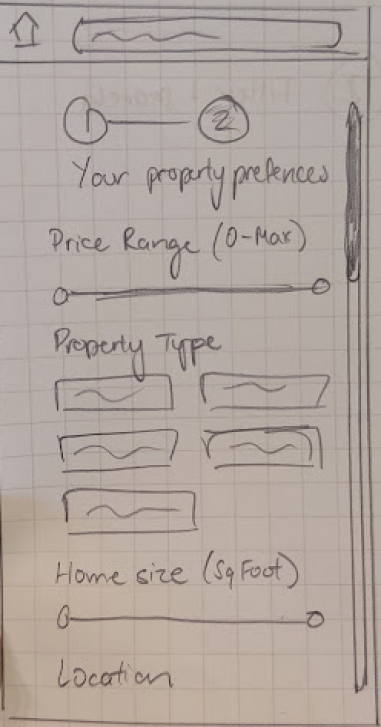 1 2
Your property prefences
Price Range (0-Max)
Property Type
Home size (Sq Foot)
Location